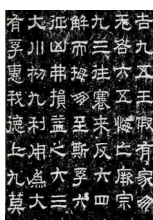 吉九五王假有家勿
无咎六五悔亡厥宗
九三往蹇来反六四
解而拇朋至斯孚六
征凶弗損益之六
大川初九利用爲大
有孚惠我德上九莫